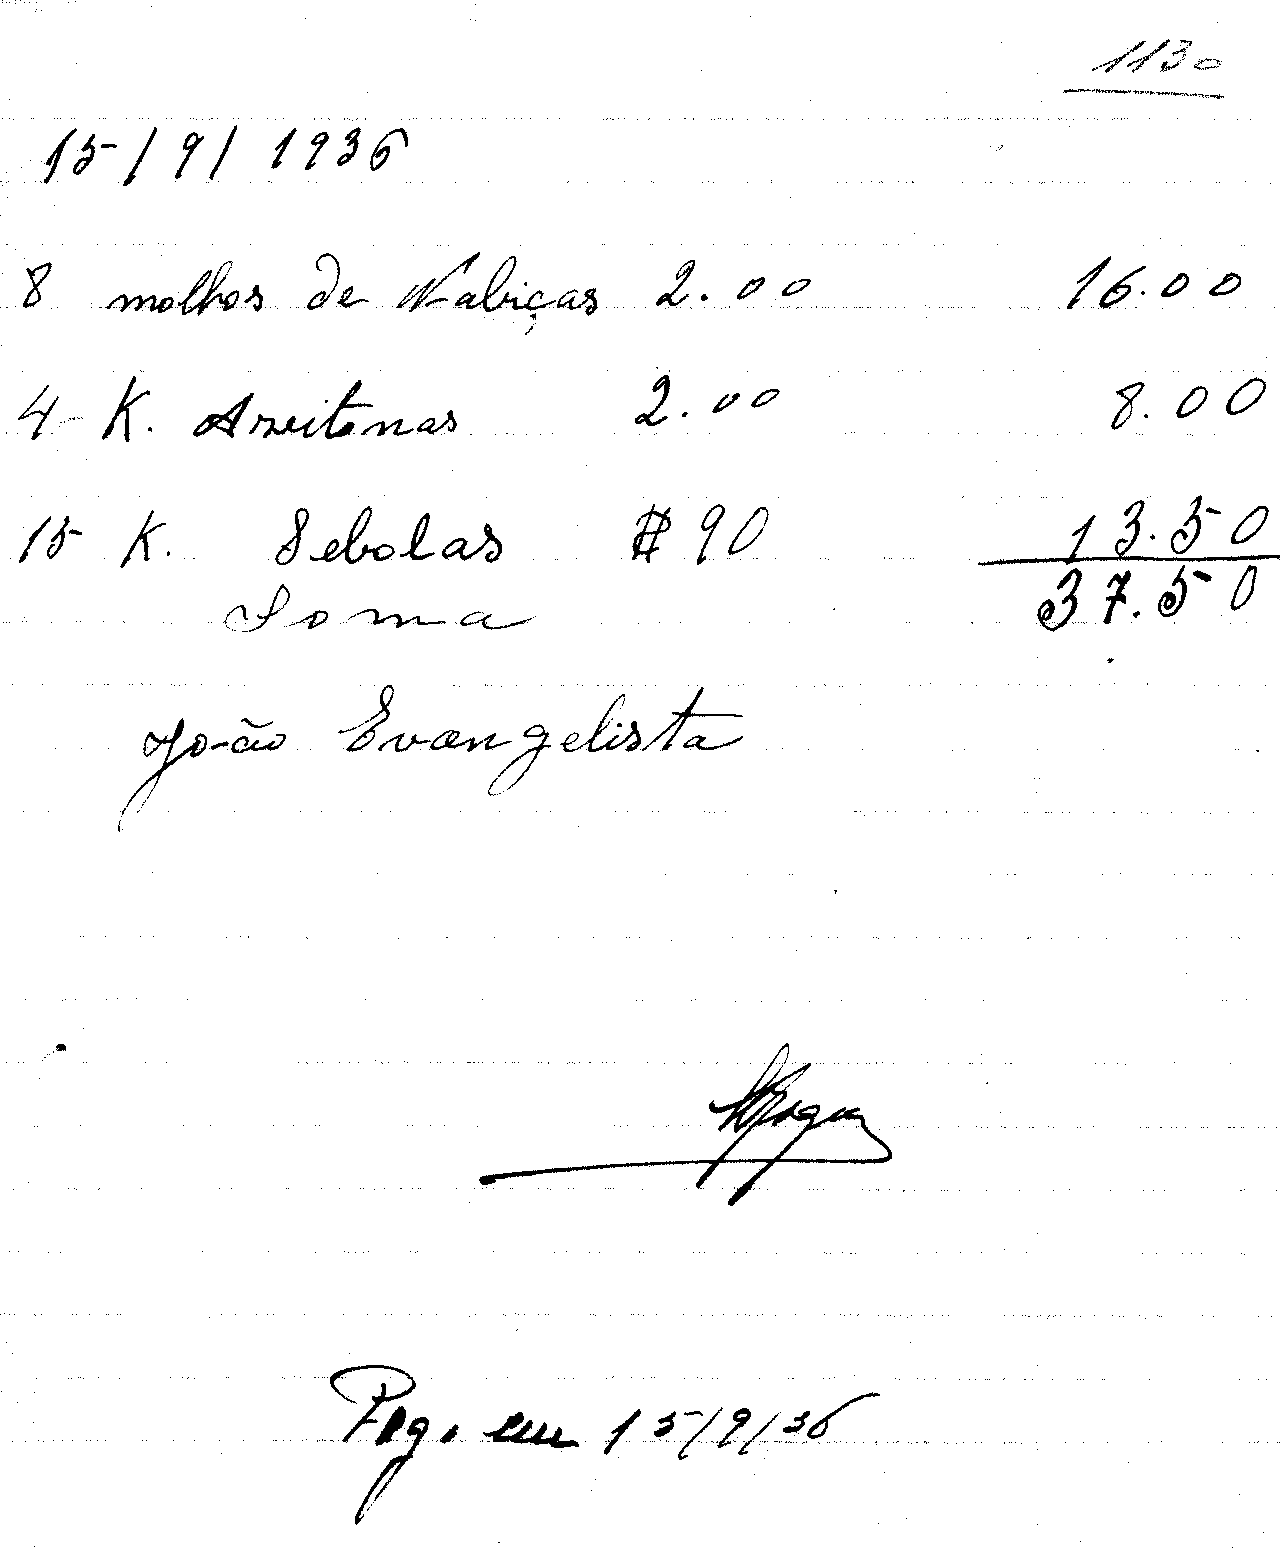 1130
15/9/1936
8 molhos de Nabiças 2.00 16.00
4 K. Azeitonas 2.00 8.00
15 K. Sebolas $90 13.50
Soma 37.50
João Evangelista
Pago em 15/9/36